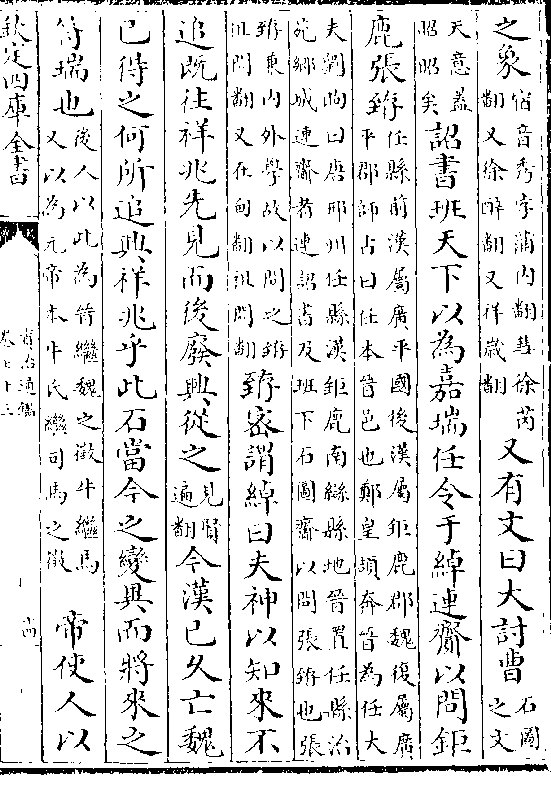 之象宿音秀孛蒲内翻彗徐芮
翻又徐醉翻又祥歲翻又有文曰大討曹石圖
之文
天意葢
昭昭矣詔書班天下以為嘉瑞任令于綽連齎以問鉅
鹿張臶任縣前漢屬廣平國後漢屬鉅鹿郡魏復屬廣
平郡師占曰任本晉邑也鄭皇頡奔晉為任大
夫劉昫曰唐邢州任縣漢鉅鹿南䜌縣地晉置任縣治
苑鄉城連齎者連詔書及班下石圖齎以問張臶也張
臶兼内外學故以問之臶
徂悶翻又在甸翻徂問翻臶密謂綽曰夫神以知來不
追既往祥兆先見而後廢興從之見賢
遍翻今漢已久亡魏
已得之何所追興祥兆乎此石當今之變異而將來之
符瑞也後人以此為晉繼魏之徵牛繼馬
又以為元帝本牛氏繼司馬之徵帝使人以
欽定四庫全書
資治通鑑
卷七十三
十四